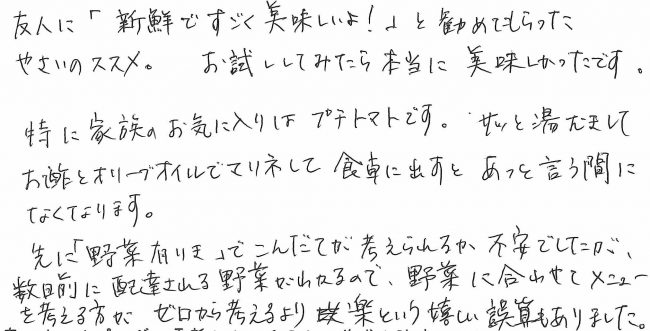 友人に「新鮮ですごく美味しいよ!」と勧めてもらった
やさいのススメ。 お試ししてみたら本当に美味しかったです。
特に家族のお気に入りはプチトマトです。サッと湯むきして
お酢とオリーブオイルでマリネして食卓に出すとあっと言う間に
なくなります。
先に「野菜有りき」でこんだてが考えられるか不安でしたが、
数日前に配達される野菜がわかるので、野菜に合わせてメニュー
を考える方が ゼロから考えるより楽という嬉しい誤算もありました。